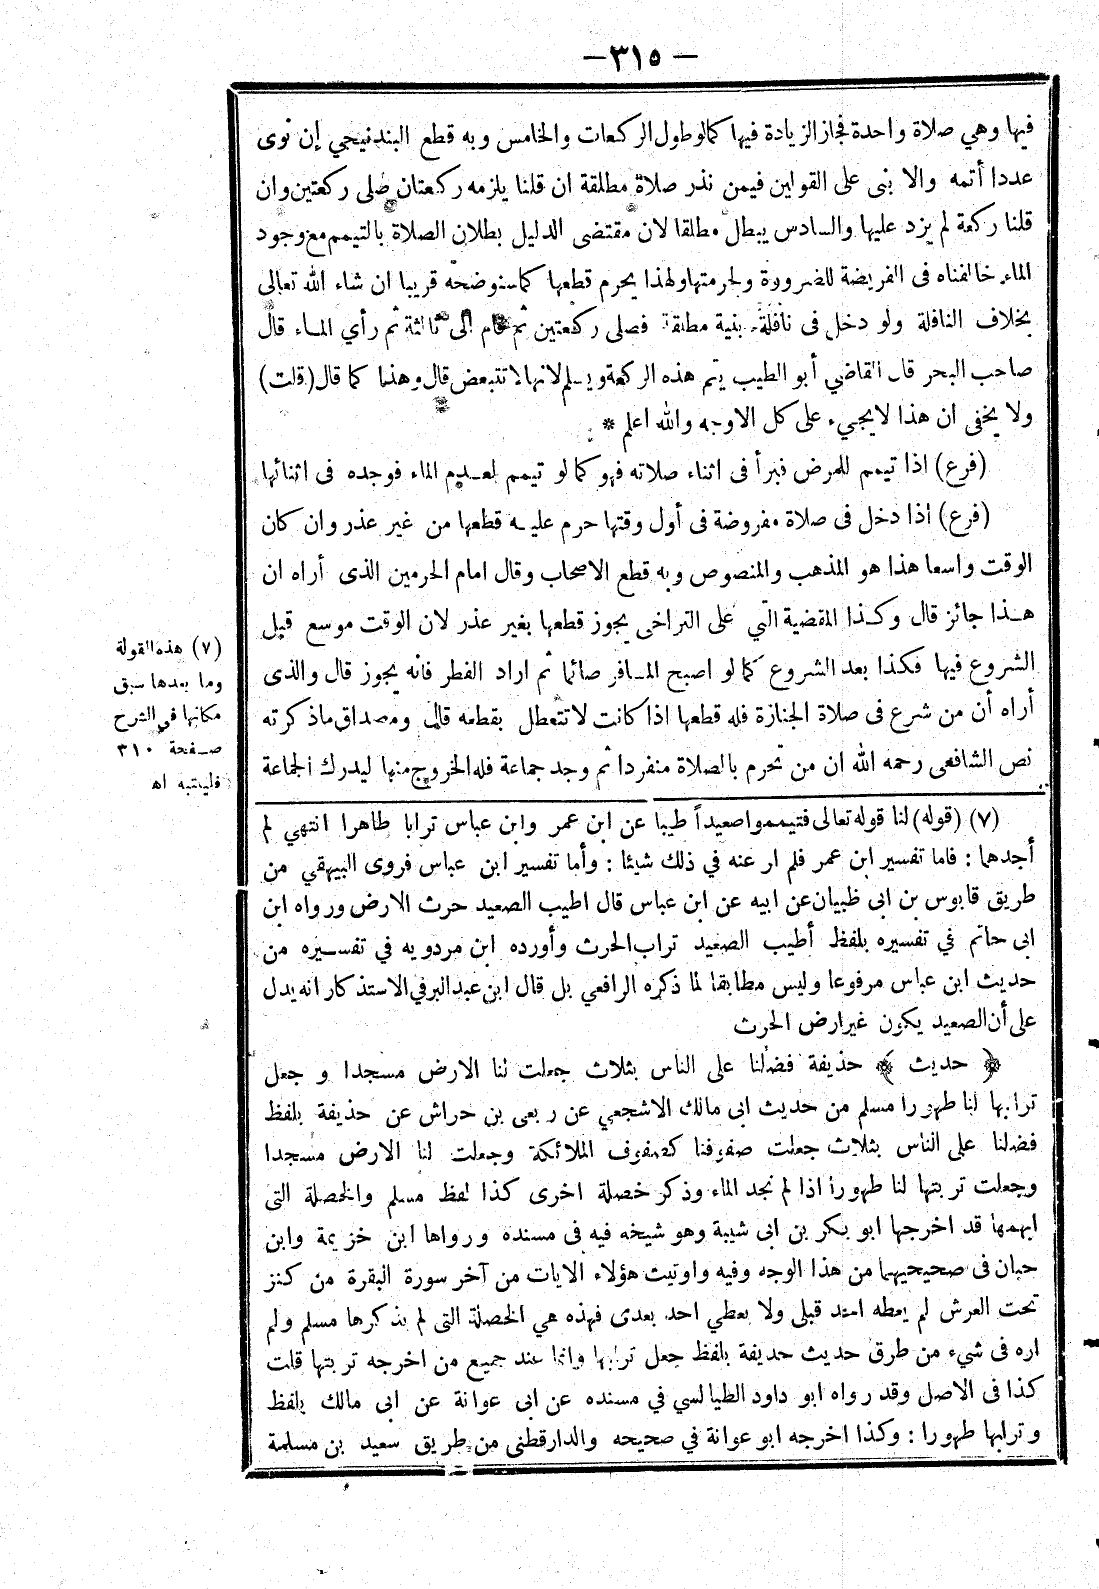 — ٣١٥ —
فيها وهي صلاة واحدة فجاز الزيادة فيها كما لو طول الركعات والخامس وبه قطع البندنيجي إن نوى
عددا أتمه والا بنى على القولين فيمن نذر صلاة مطلقة ان قلنا يلزمه ركعتان صلى ركعتين وان
قلنا ركعة لم يزد عليها والسادس يبطل مطلقا لان مقتضى الدليل بطلان الصلاة بالتيمم مع وجود
الماء خالفناه فى الفريضة للضرورة ولحرمتها ولهذا يحرم قطعها كما سنوضحه قريبا ان شاء الله تعالى
بخلاف النافلة ولو دخل فى نافلة بنية مطلقة فصلى ركعتين ثم قام الى ثالثة ثم رأي الماء قال
صاحب البحر قال القاضي أبو الطيب يتم هذه الركعة ويسلم لانها لا تتبعض قال وهذا كما قال (قلت)
ولا يخفى ان هذا لا يجيء على كل الاوجه والله اعلم *
(فرع) اذا تيمم للمرض فبرأ فى اثناء صلاته فهو كما لو تيمم لعدم الماء فوجده فى اثنائها
(فرع) اذا دخل فى صلاة مفروضة فى أول وقتها حرم عليه قطعها من غير عذر وان كان
الوقت واسعا هذا هو المذهب والمنصوص وبه قطع الاصحاب وقال امام الحرمين الذى أراه ان
هذا جائز قال وكذا المقضية التي على التراخى يجوز قطعها بغير عذر لان الوقت موسع قبل
الشروع فيها فكذا بعد الشروع كما لو اصبح المسافر صائما ثم اراد الفطر فانه يجوز قال والذى
أراه أن من شرع فى صلاة الجنازة فله قطعها اذا كانت لا تتعطل بقطعه قال ومصداق ما ذكرته
نص الشافعى رحمه الله ان من تحرم بالصلاة منفردا ثم وجد جماعة فله الخروج منها ليدرك الجماعة
(٧) هذه القولة
وما بعدها سبق
مكانها في الشرح
صفحة ٣١٠
فليتنبه اه
(٧) (قوله) لنا قوله تعالى فتيمموا صعيداً طيبا عن ابن عمر وابن عباس ترابا طاهرا انتهي لم
أجدهما : فاما تفسير ابن عمر فلم ار عنه في ذلك شيئا : وأما تفسير ابن عباس فروى البيهقي من
طريق قابوس بن ابى ظبيان عن ابيه عن ابن عباس قال اطيب الصعيد حرث الارض ورواه ابن
ابى حاتم في تفسيره بلفظ أطيب الصعيد تراب الحرث وأورده ابن مردويه في تفسيره من
حديث ابن عباس مرفوعا وليس مطابقا لما ذكره الرافعي بل قال ابن عبد البر في الاستذكار انه يدل
على أن الصعيد يكون غير ارض الحرث
﴿ حديث ﴾ حذيفة فضلنا على الناس بثلاث جعلت لنا الارض مسجدا و جعل
ترابها لنا طهورا مسلم من حديث ابى مالك الاشجعي عن ربعى بن حراش عن حذيفة بلفظ
فضلنا على الناس بثلاث جعلت صفوفنا كصفوف الملائكة وجعلت لنا الارض مسجدا
وجعلت تربتها لنا طهورا اذا لم نجد الماء وذكر خصلة اخرى كذا لفظ مسلم والخصلة التى
ابهمها قد اخرجها ابو بكر بن ابى شيبة وهو شيخه فيه فى مسنده ورواها ابن خزيمة وابن
حبان فى صحيحيهما من هذا الوجه وفيه واوتيت هؤلاء الايات من آخر سورة البقرة من كنز
تحت العرش لم يعطه احد قبلى ولا يعطي احد بعدى فهذه هي الخصلة التى لم يذكرها مسلم ولم
اره فى شيء من طرق حديث حذيفة بلفظ جعل ترابها وانما عند جميع من اخرجه تربتها قلت
كذا فى الاصل وقد رواه ابو داود الطيالسي في مسنده عن ابى عوانة عن ابى مالك بلفظ
وترابها طهورا : وكذا اخرجه ابو عوانة في صحيحه والدارقطنى من طريق سعيد بن مسلمة